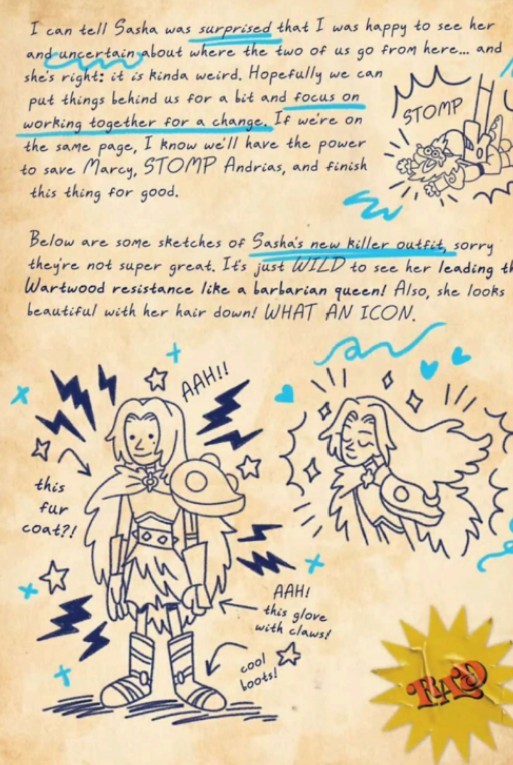 I can tell Sasha was surprised that I was happy to see her
and uncertain about where the two of us go from here... and
she's right: it is kinda weird. Hopefully we can
put things behind us for a bit and focus on
working together for a change. If we're on
the same page, I know we'll have the power
to save Marcy, STOMP Andrias, and finish
this thing for good.
STOMP
Below are some sketches of Sasha's new killer outfit, sorry
they're not super great. It's just WILD to see her leading th
Wartwood resistance like a barbarian queen! Also, she looks
beautiful with her hair down! WHAT AN ICON.
AAH!!
this
fur
coat?!
AAH!
this glove
with claws!
cool
boots!
RAD